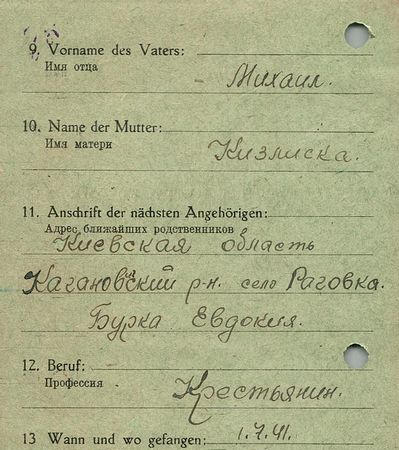 9. Vorname des Vaters:
Имя отца
Михаил.
10. Name der Mutter:
Имя матери
Кизлиска.
11. Anschrift der nächsten Angehörigen:
Адрес ближайших родственников
Киевская область
Кагановский р-н. село Раговка.
Бурка Евдокия.
12. Beruf:
Профессия
Крестьянин.
13 Wann und wo gefangen: 1.7.41.